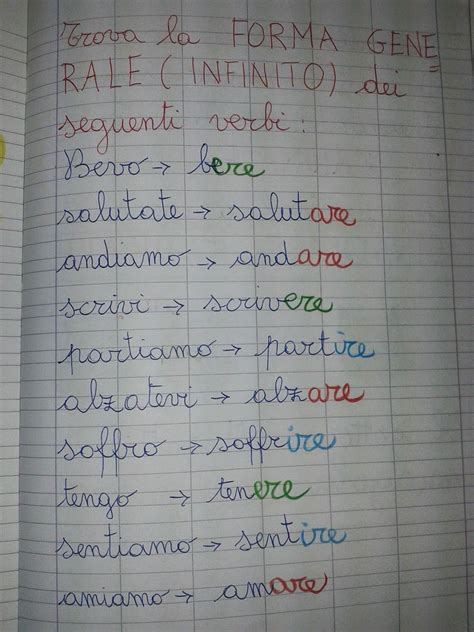 Trova la FORMA GENE=
RALE (INFINITO) dei
seguenti verbi:
Bevo → bere
salutate → salutare
andiamo → andare
scrivi → scrivere
partiamo → partire
alzatevi → alzare
soffro → soffrire
tengo → tenere
sentiamo → sentire
amiamo → amare